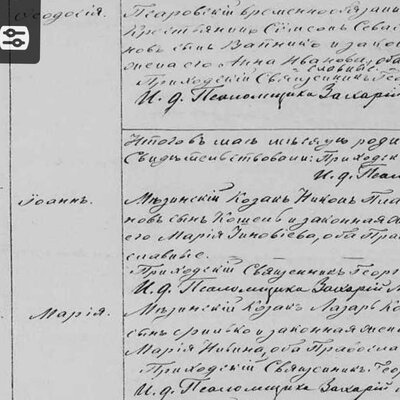 Ѳеодосія.
Псаровскій временно обязан
крестьянинъ Сѵмеонъ Севас
новъ сынъ
жена его Анна Иванова, оба
славные.
Приходскій Священникъ Гео
И. д. Псаломщика Захарій
Итого въ маѣ мѣсяцѣ роди
Свидѣтельствовали: Приходск
И. д. Псало
Іоаннъ.
Мѣзинскій Козакъ Никонъ Пла
новъ сынъ Кошель и законная ж
его Марія Зиновіева, оба Пра
славные.
Приходскій Священникъ Георг
И. д. Псаломщика Захарій
Марія.
Мѣзинскій Козакъ Лазарь
сынъ и законная жен
Марія оба Православ
Приходскій Священникъ Гео
И. д. Псаломщика Захарій